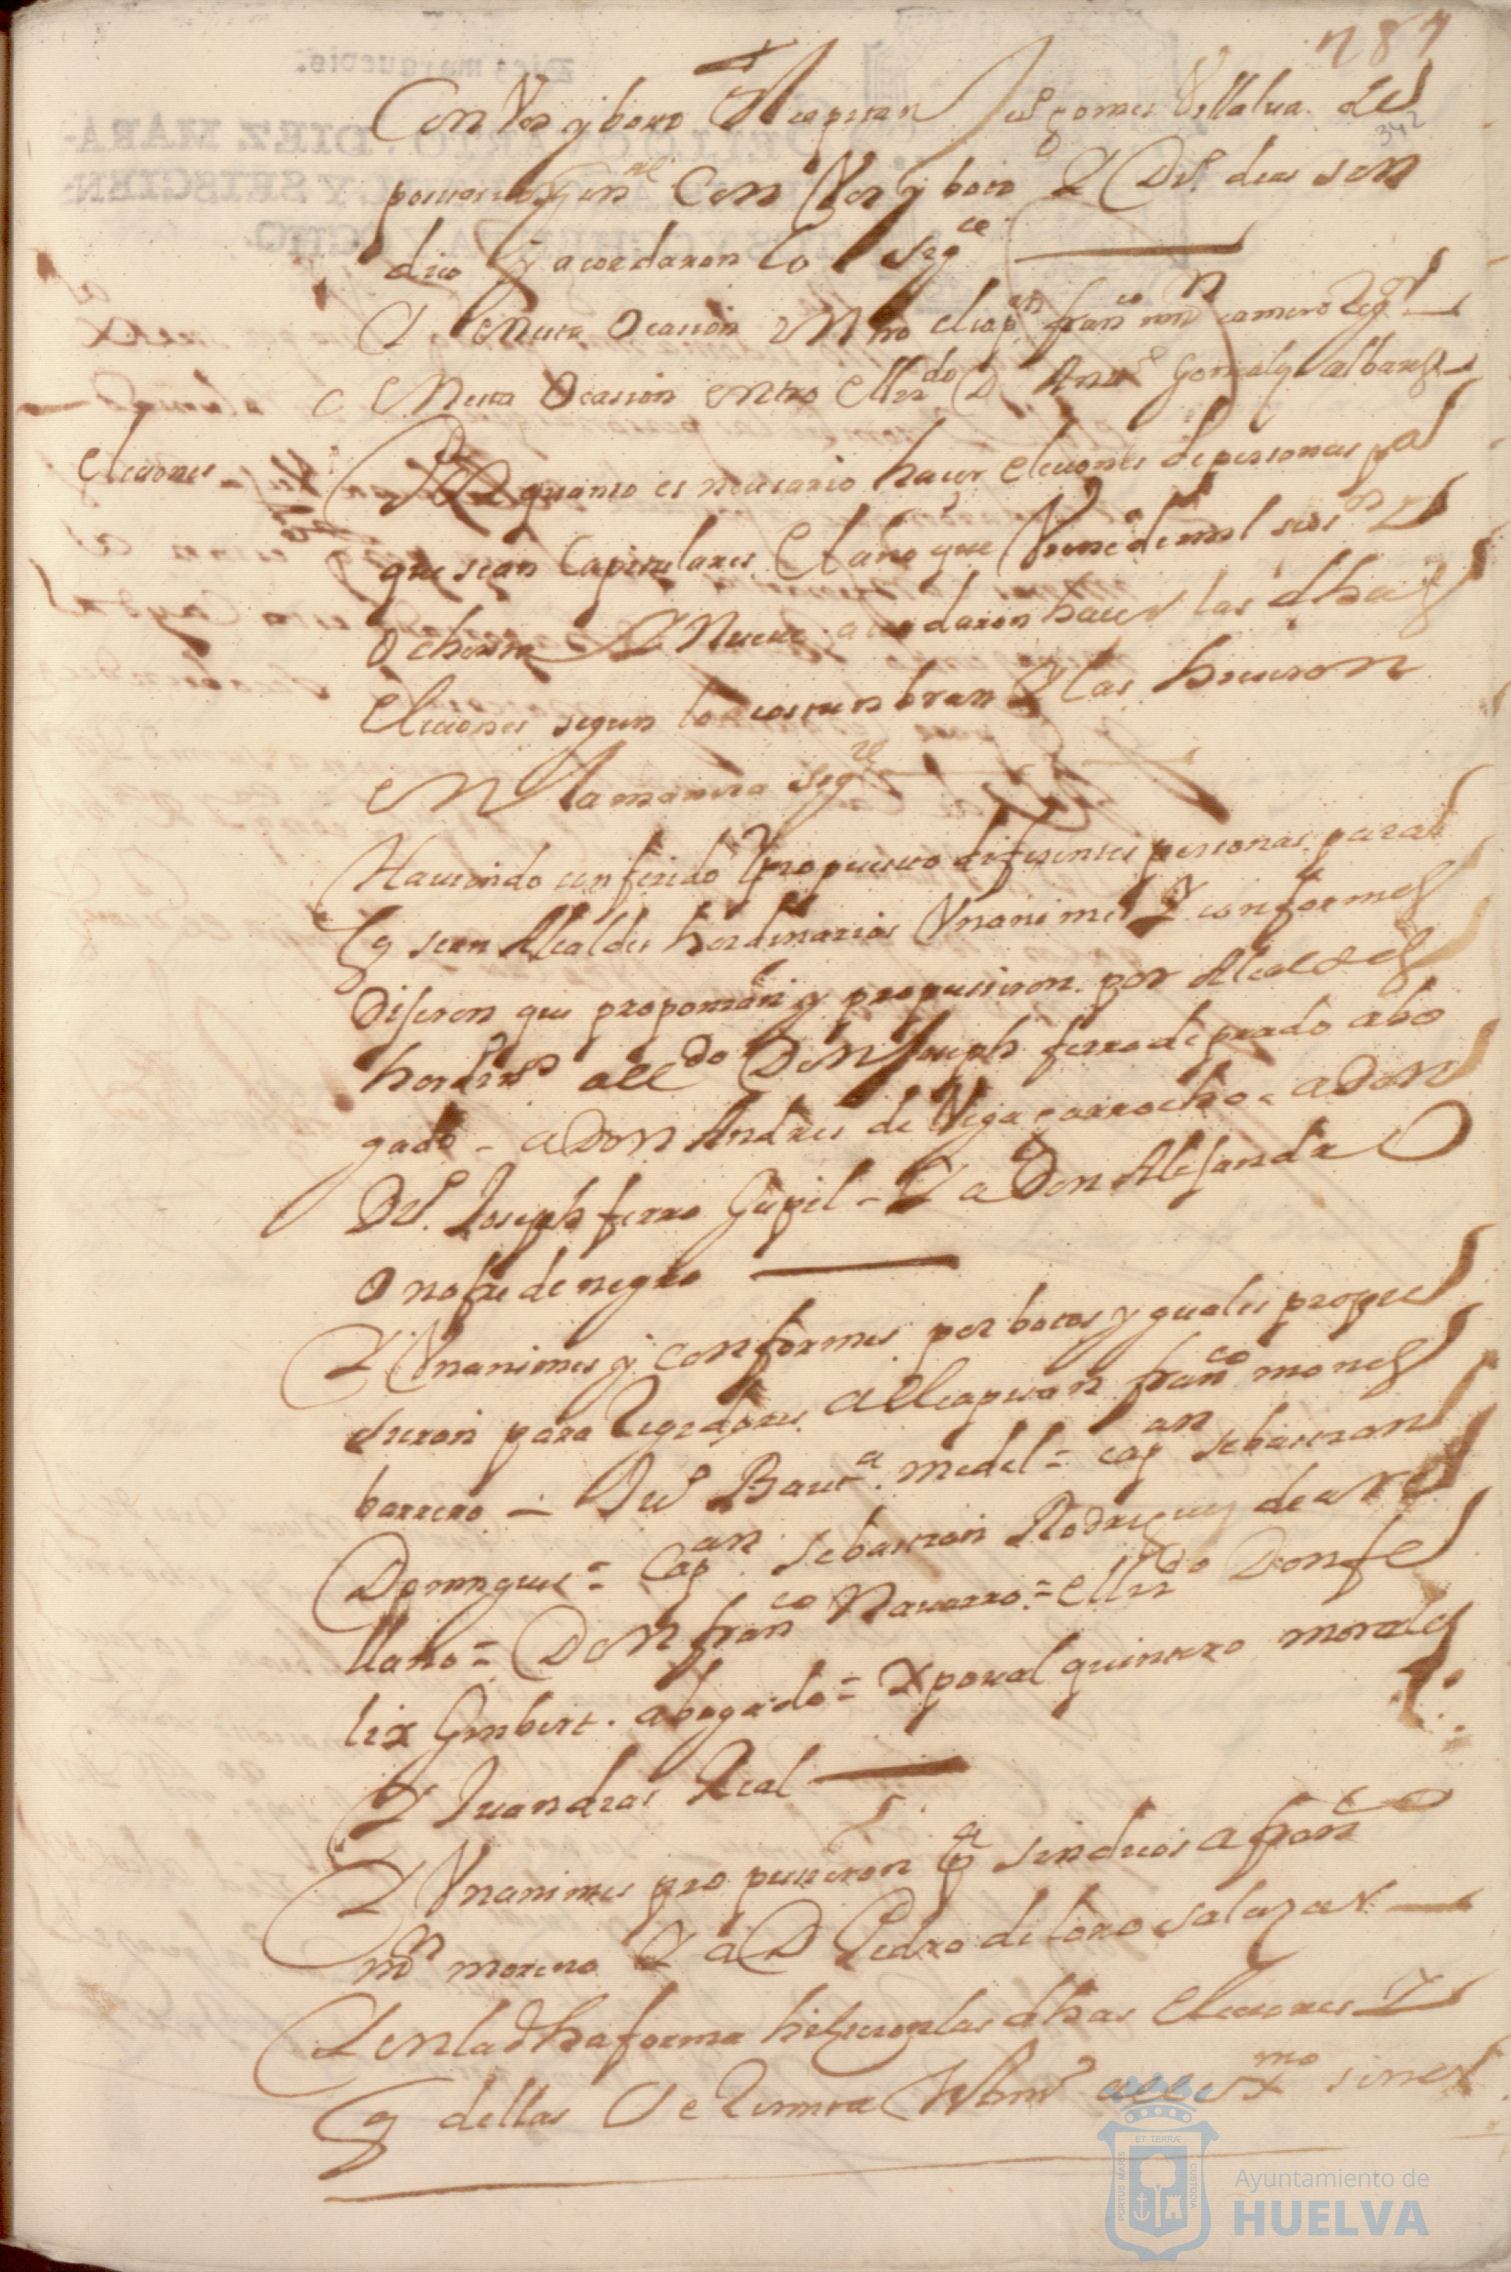 787
342
Con Vos y boto el capitan Juº gomes Villalua del
Con Vos y boto Y Dº dias sin
dico Y acordaron lo sigte
Y En esta Ocasion entro el capn franco camero Regor
C En esta Ocasion entro el lizdo D Anto Gonsales albares
Elecciones
Por quanto es nesesario haser elecciones de personas pa
que sean Capitulares El año que Viene de mil seisos Y
ochenta Y Nueue acordaron haser las dhas
Elecciones segun lo acostunbran Y las hicieron
En la manera sigte
Hauiendo conferido Y propuesto diferentes personas para
q sean Alcaldes hordinarios Vnanimes Y conformes
Dijeron que proponian y propusieron por Alcaldes
hordinos al ldo Don Joseph ferro de prado abo
gado - a Don Andres de Vega garrocho - a Don
Dº. Joseph ferro Gupil - Y a Don Alejandro
Onofre de negro
Y Vnanimes y conformes por botos yguales propu
sieron para Regidores al capitan franco mones
barrero - Juº Bauta medel = capan sebastian
Domingues = Capan sebastian Rodrigues de are
llano = Don franco Nauarro = el lizdo Don fe
lix Ginbert. abogado = Xpoual quintero morales
Y Juan dias Real
Y Vnanimes propusieron pa sindicos a
mrn moreno Y a D Pedro de toro salazar
Y en la dha forma hizieron las dhas Elecciones Y
q dellas Se Remita al exmo
Ayuntamiento de
HUELVA
PORTUS MARIS
ET TERRÆ
CUSTODIA